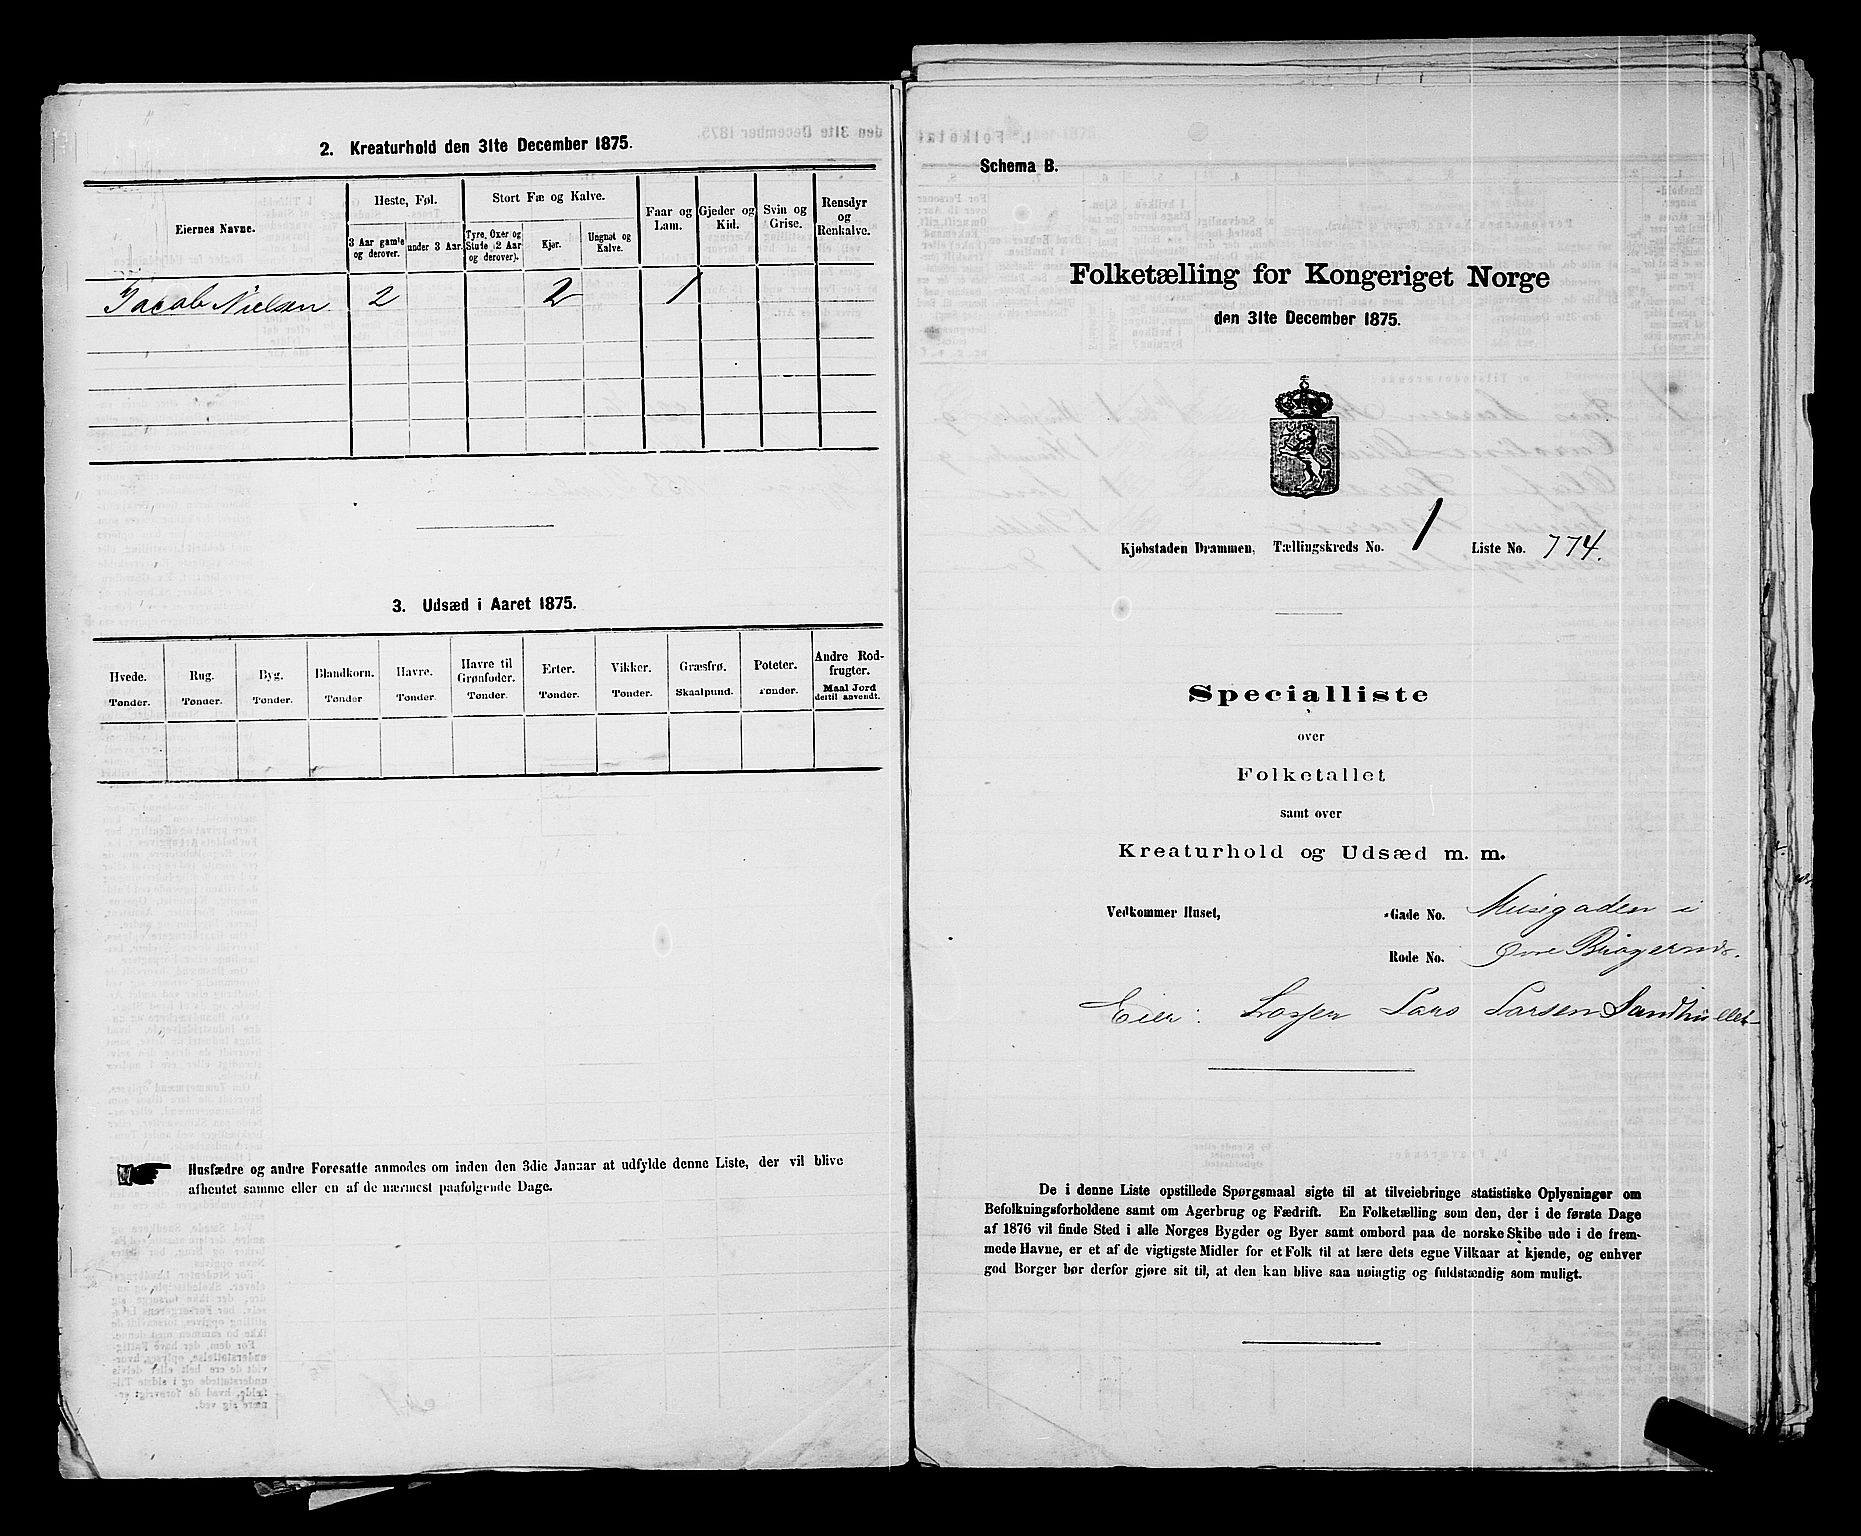 2. Kreaturhold den 31te December 1875.
Eiernes Navne.
Heste, Føl.
Stort Fæ og Kalve.
Faar og Lam.
Gjeder og Kid.
Svin og Grise.
Rensdyr og Renkalve.
3 Aar gamle og derover.
under 3 Aar.
Tyre, Oxer og Stude (2 Aar og derover).
Kjør.
Ungnøt og Kalve.
Jacob Nielsen 2 2 1
3. Udsæd i Aaret 1875.
Hvede. Rug. Byg. Blandkorn. Havre. Havre til Grønfoder. Erter. Vikker. Græsfrø. Poteter. Andre Rodfrugter.
Tønder. Tønder. Tønder. Tønder Tønder. Tønder. Tønder. Tønder. Skaalpund. Tønder. Maal Jord dertil anvendt.
Husfædre og andre Foresatte anmodes om inden den 3die Januar at udfylde denne Liste, der vil blive
afhentet samme eller en af de nærmest paafølgende Dage.
Schema B.
Folketælling for Kongeriget Norge
den 31te December 1875.
Kjøbstaden Drammen, Tællingskreds No. 1 Liste No. 774.
Specialliste
over
Folketallet
samt over
Kreaturhold og Udsæd m. m.
Vedkommer Huset, -Gade No. Musigaden i
Rode No. Øvre Bragernæs.
Eier: Lars Larsen Sandhullet
De i denne Liste opstillede Spørgsmaal sigte til at tilveiebringe statistiske Oplysninger om
Befolkningsforholdene samt om Agerbrug og Fædrift. En Folketælling som den, der i de første Dage
af 1876 vil finde Sted i alle Norges Bygder og Byer samt ombord paa de norske Skibe ude i de frem-
mede Havne, er et af de vigtigste Midler for et Folk til at lære dets egne Vilkaar at kjende, og enhver
god Borger bør derfor gjøre sit til, at den kan blive saa nøiagtig og fuldstændig som muligt.